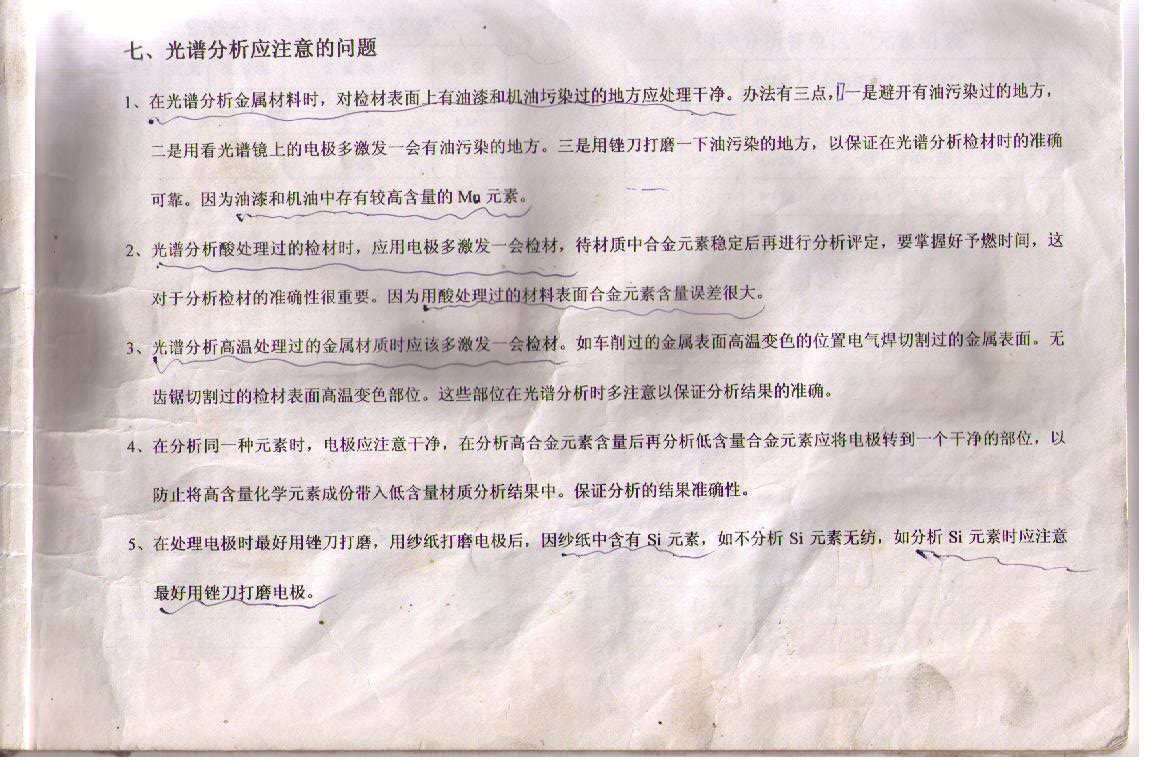 七、光谱分析应注意的问题
1、在光谱分析金属材料时，对检材表面上有油漆和机油圬染过的地方应处理干净。办法有三点，一是避开有油污染过的地方，
二是用看光谱镜上的电极多激发一会有油污染的地方。三是用锉刀打磨一下油污染的地方，以保证在光谱分析检材时的准确
可靠。因为油漆和机油中存有较高含量的 元素。
2、光谱分析酸处理过的检材时，应用电极多激发一会检材，待材质中合金元素稳定后再进行分析评定，要掌握好予燃时间，这
对于分析检材的准确性很重要。因为用酸处理过的材料表面合金元素含量误差很大。
3、光谱分析高温处理过的金属材质时应该多激发一会检材。如车削过的金属表面高温变色的位置电气焊切割过的金属表面。无
齿锯切割过的检材表面高温变色部位。这些部位在光谱分析时多注意以保证分析结果的准确。
4、在分析同一种元素时，电极应注意干净，在分析高合金元素含量后再分析低含量合金元素应将电极转到一个干净的部位，以
防止将高含量化学元素成份带入低含量材质分析结果中。保证分析的结果准确性。
5、在处理电极时最好用锉刀打磨，用纱纸打磨电极后，因纱纸中含有 Si 元素，如不分析 Si 元素无纺，如分析 Si 元素时应注意
最好用锉刀打磨电极。